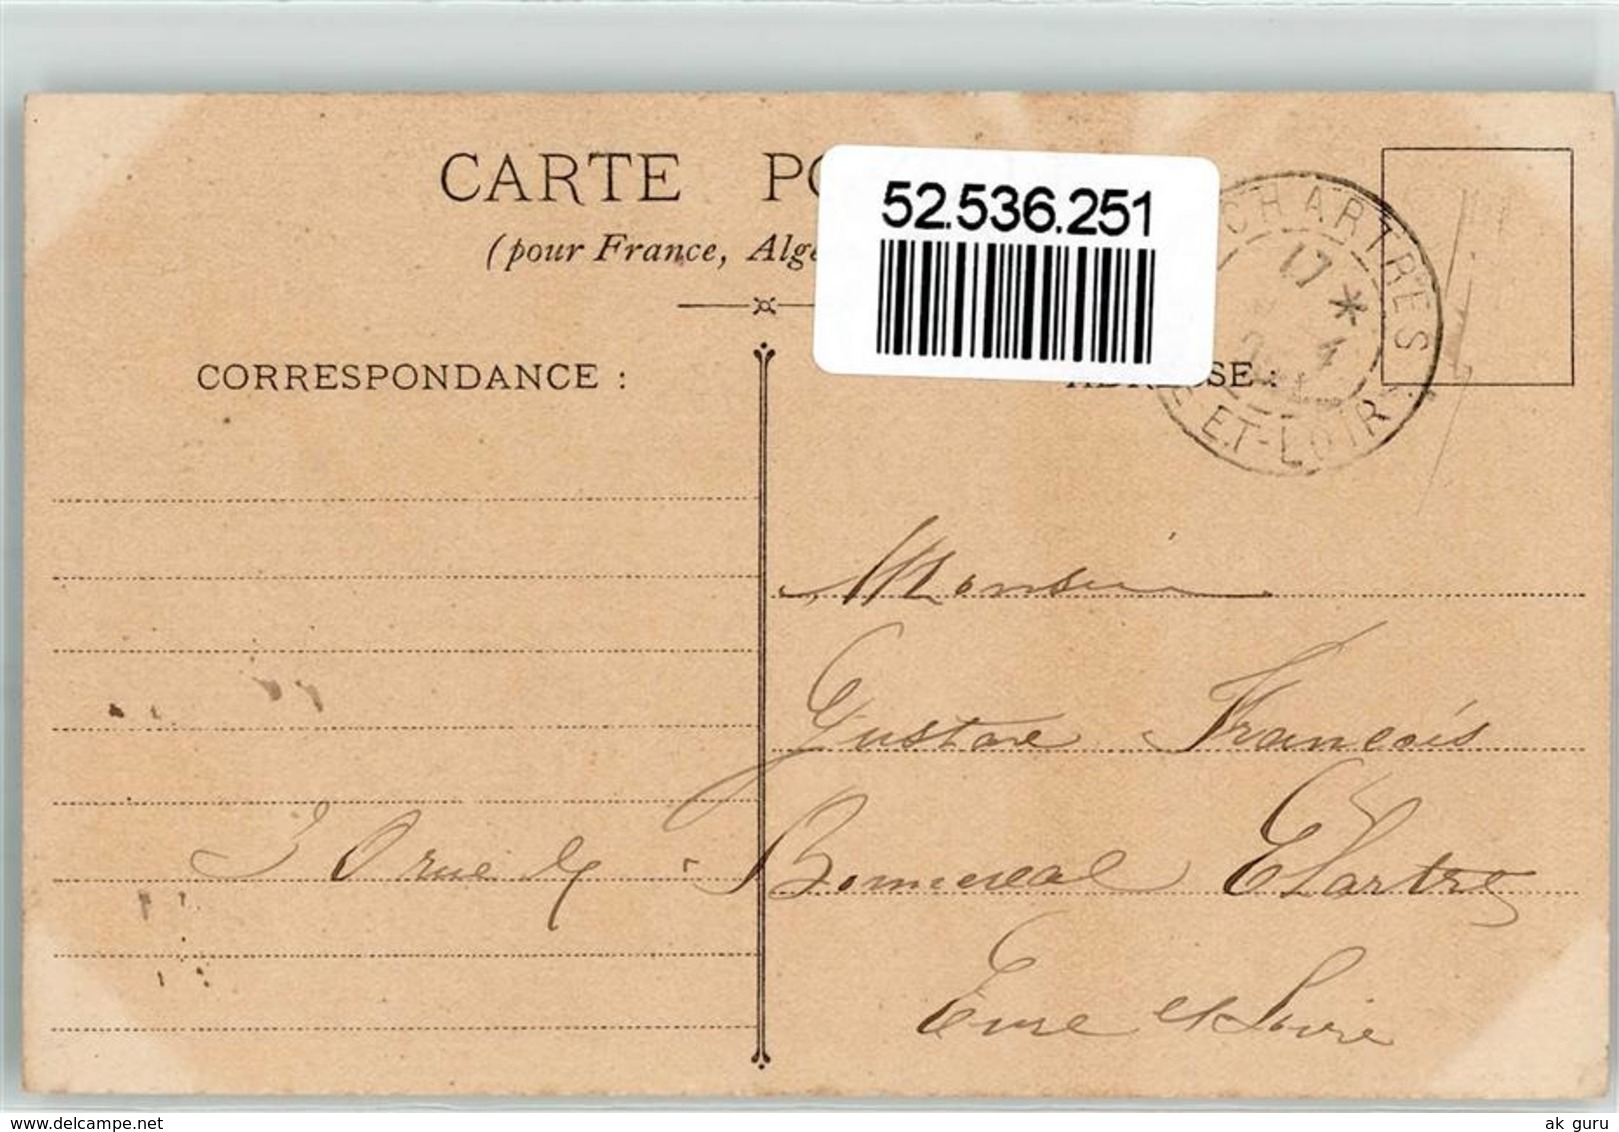 CARTE PO
(pour France, Algé
52.536.251
CHARTRES
17 *
E-ET-LOIR
CORRESPONDANCE :
ADRESSE :
Monsieur
Gustave François
30 rue de Bonneval Chartres
Eure et Loire
ak guru